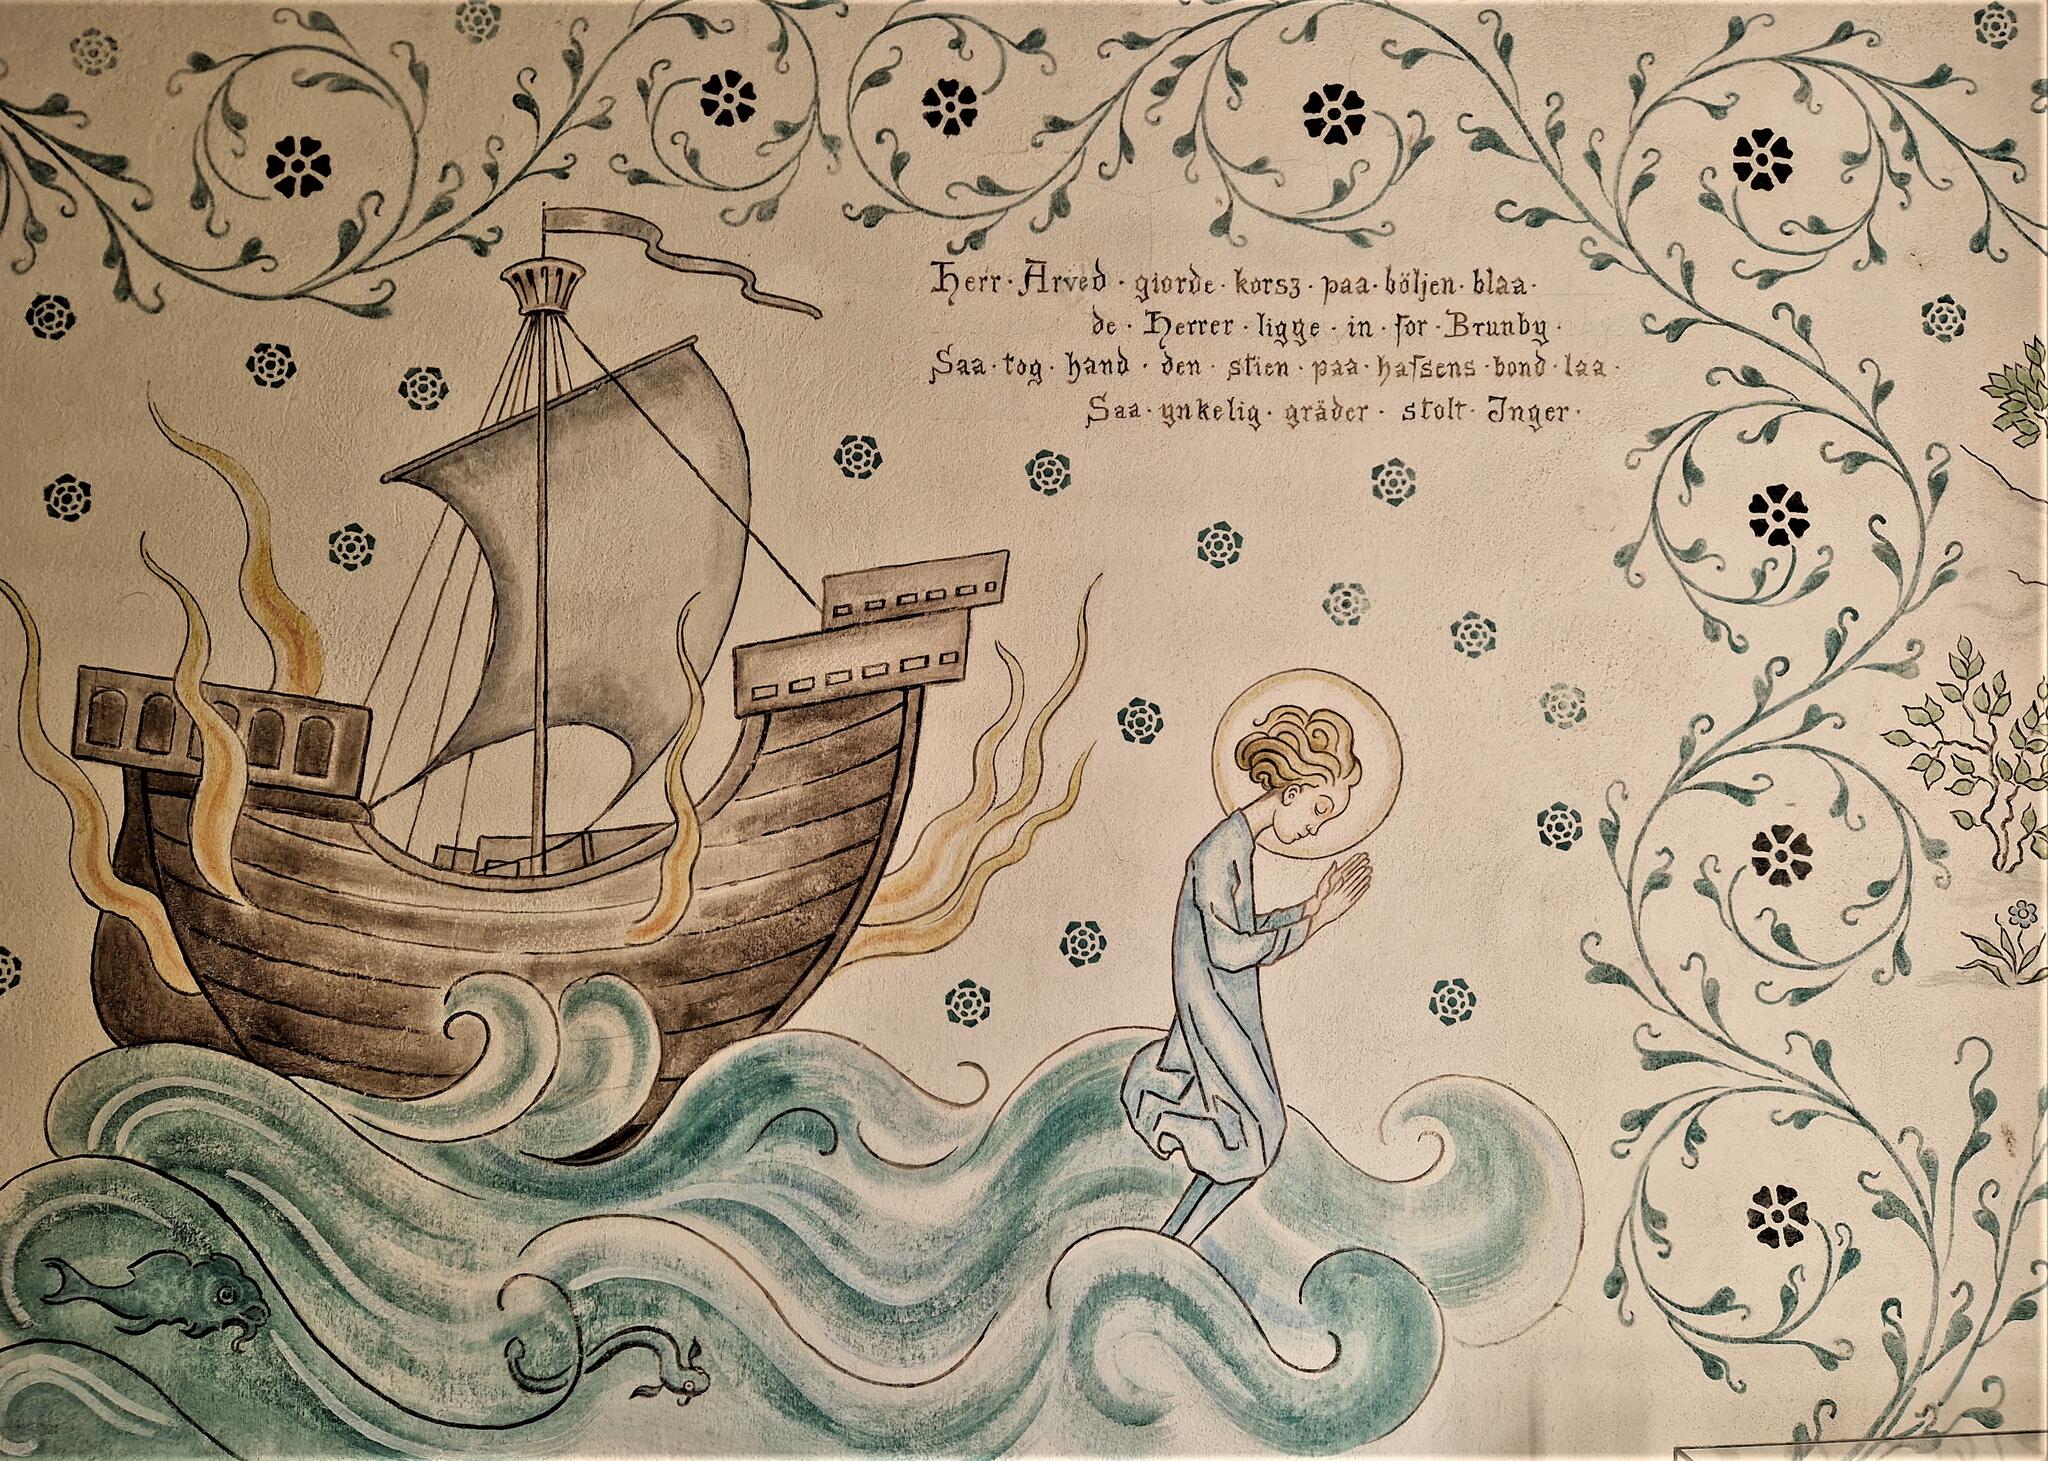 Herr · Arved · giorde · korsz · paa · böljen · blaa ·
de · Herrer · ligge · in · for · Brunby ·
Saa · tog · hand · den · stien · paa · hafsens · bond · laa ·
Saa · ynkelig · gräder · stolt · Inger ·